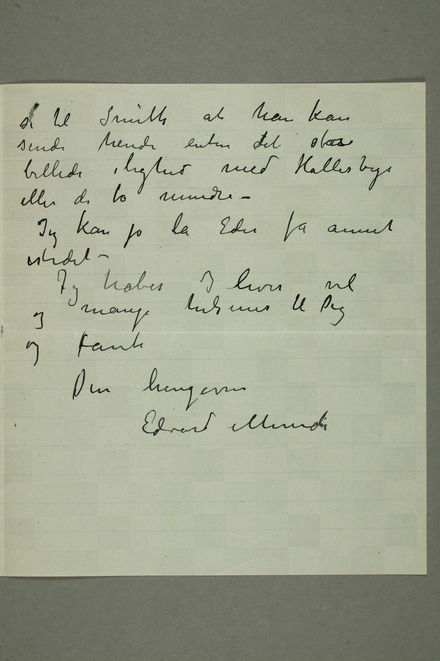 si til Smith at han kan
sende hende enten det store
billede i lighed med Hallesbys
eller de to mindre –
Jeg kan jo la Eder få annet
istedet –
Jeg håber I lever vel
og mange hilsener til Dig
og Fanti
Din hengivne
Edvard Munch